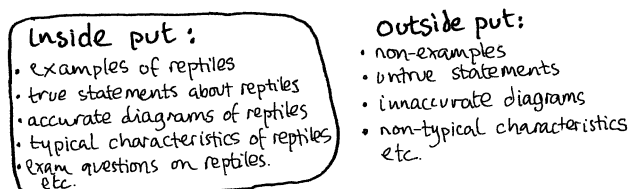 Inside put:
• examples of reptiles
• true statements about reptiles
• accurate diagrams of reptiles
• typical characteristics of reptiles
• exam questions on reptiles.
etc.
Outside put:
• non-examples
• untrue statements
• innaccurate diagrams
• non-typical characteristics
etc.